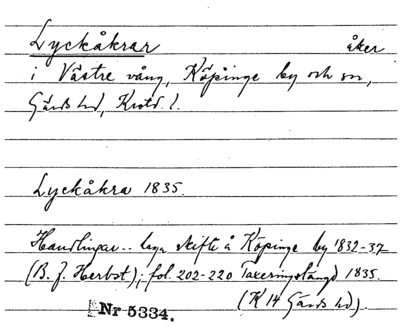 Lyckåkrar åker
i Västre vång, Köpinge by och sn,
Gärds hd, Kristd. l.
Lyckåkra 1835.
Handlingar.. laga skifte å Köpinge by 1832-37
(B. J. Herbst); fol. 202-220 Taxeringslängd 1835.
(K 14 Gärds hd).
Nr 5334.